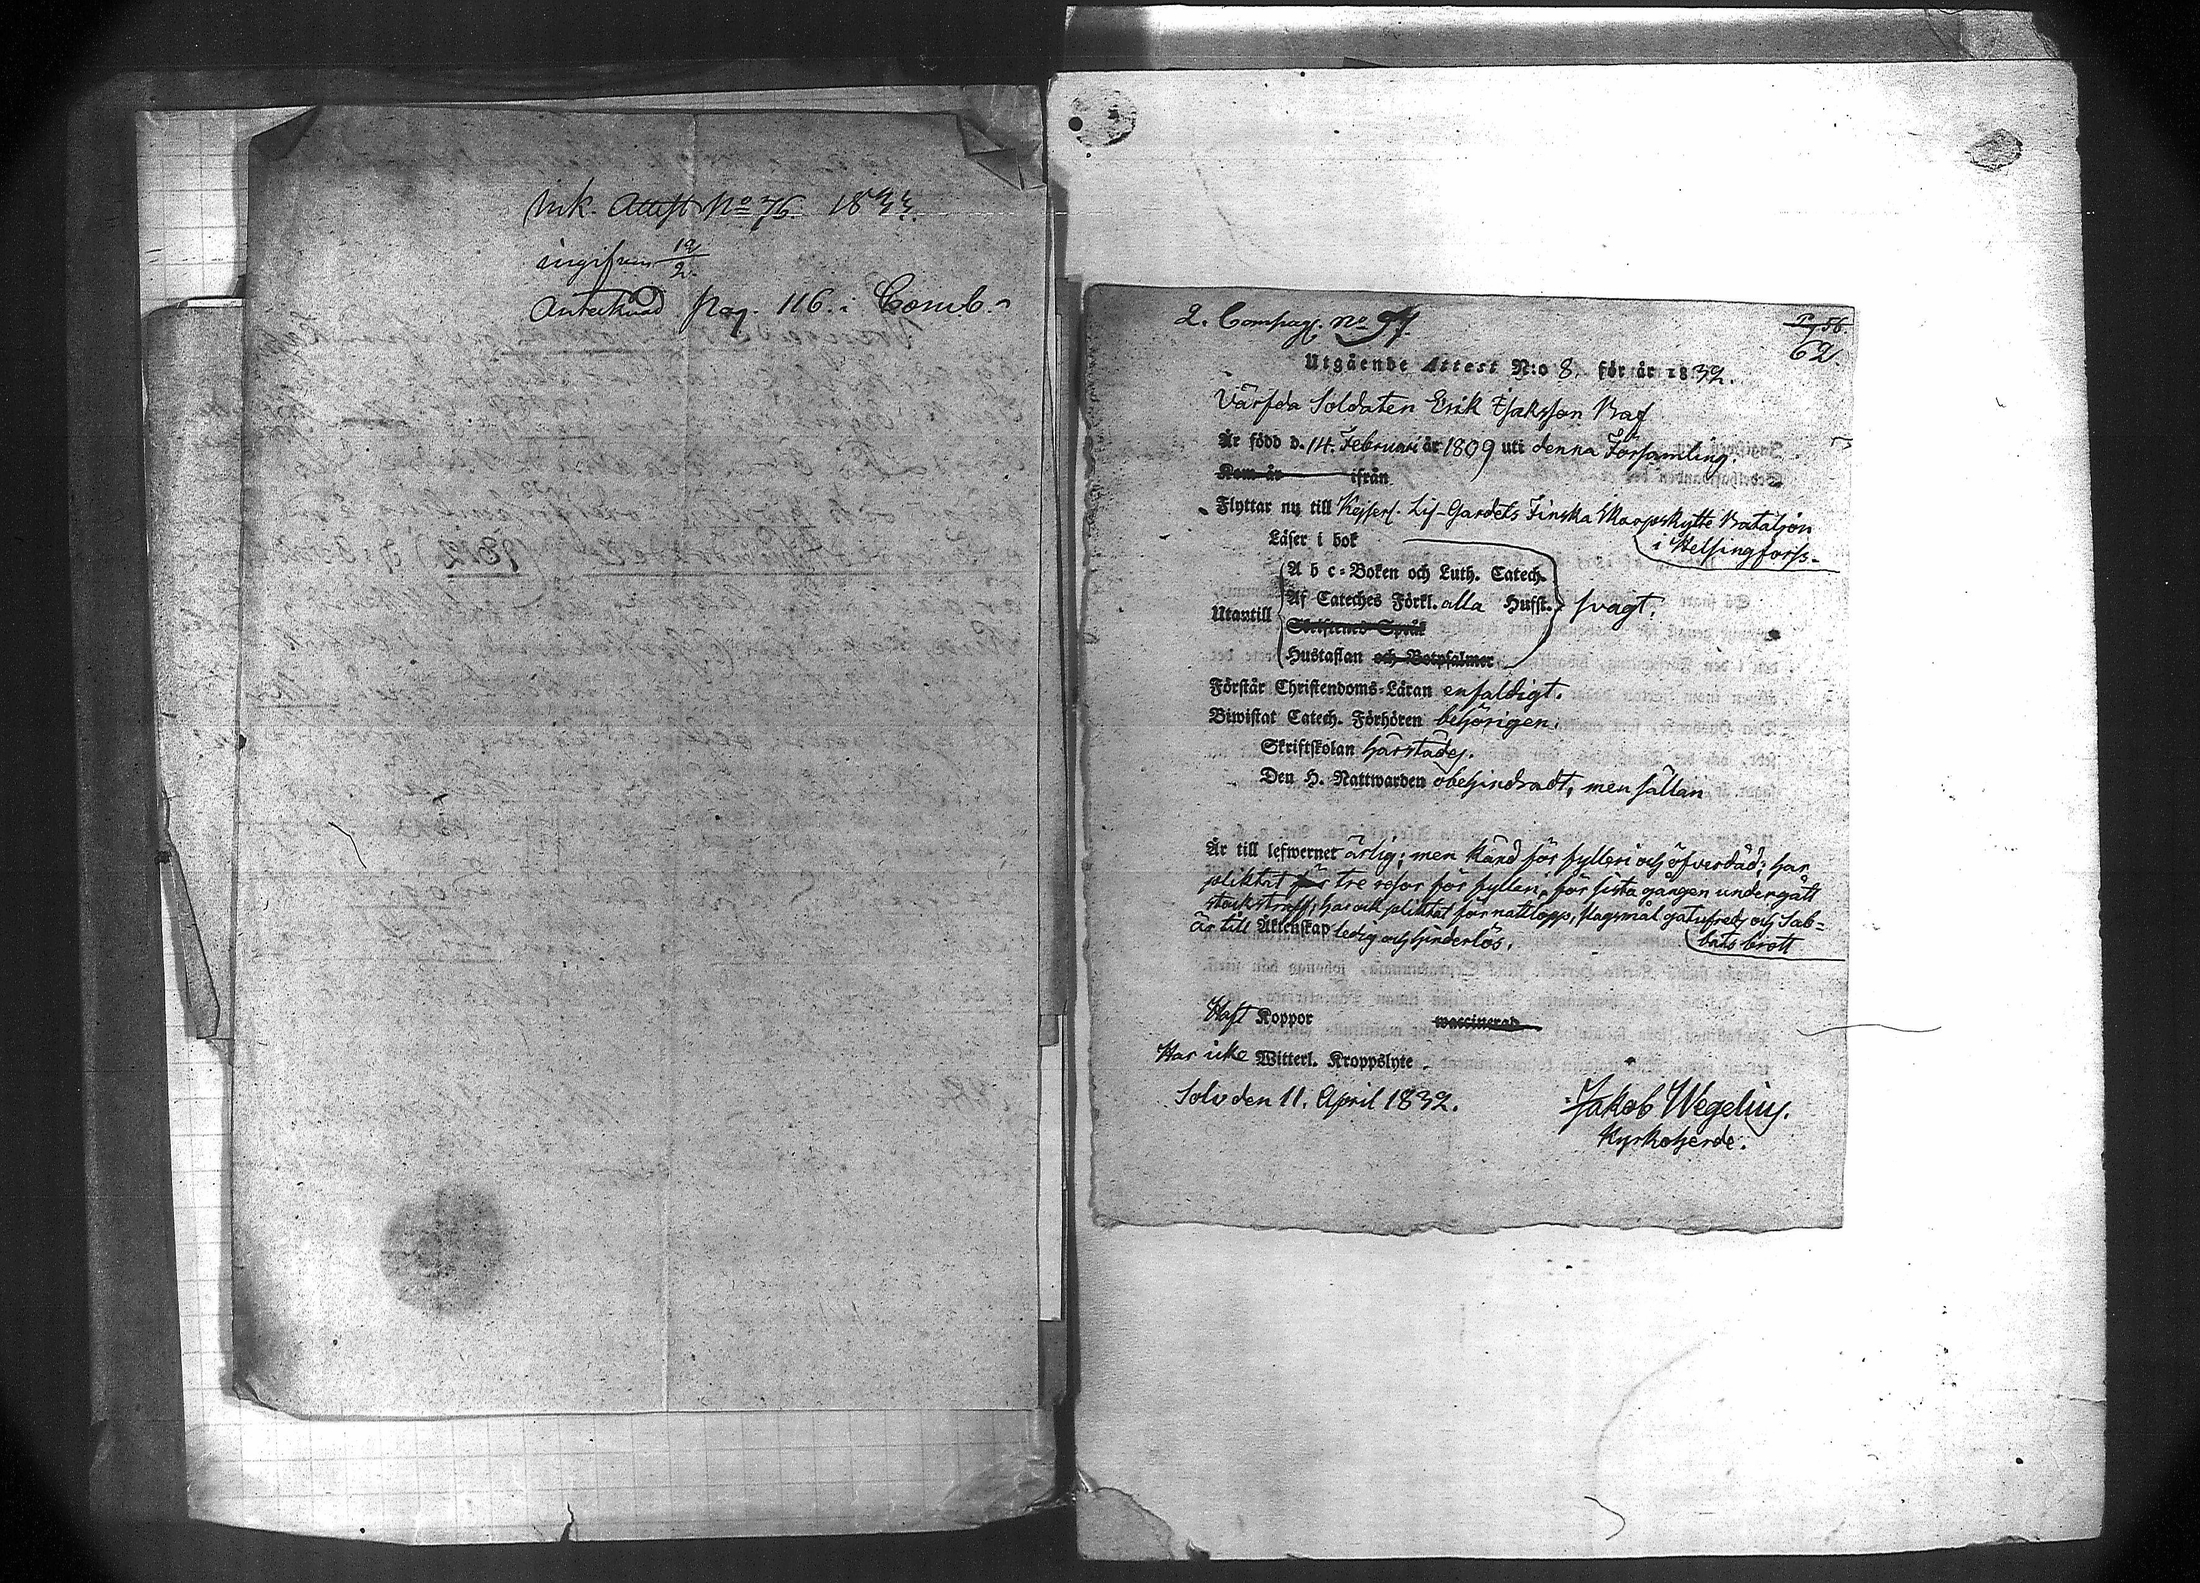 Ink. Attest No 76 1833.
ingifven 19/2.
Antecknad pag. 116. i Comb.
2. Compagn. No 97.
P. 56.
62
Utgående Attest N:o 8. för år 1832.
Värfda Soldaten Erik Isaksson Raf
Är född d. 14. Februari år 1809 uti denna Församling.
Kom år ifrån
Flyttar nu till Kejserl. Lif-Gardets Finska Skarpskytte Bataljon
i Helsingforss.
Läser i bok
A b c-Boken och Luth. Catech.
Utantill Af Cateches Förkl. alla Hufst. svagt.
Skriftenes Språk
Hustaflan och Botpsalmer
Förstår Christendoms-Läran enfaldigt.
Biwistat Catech. Förhören behörigen.
Skriftskolan härstädes.
Den H. Nattwarden obehindradt, men sällan
Är till lefwernet ärlig; men känd för fylleri och öfverdåd; har
pliktat för tre resor för fylleri, för sista gången undergått
stockstraff; har ock pliktat för nattlopp, slagsmål gatufred och Sab-
bats brott
är till Äktenskap ledig och hinderlös.
Haft Koppor waccinerad
Har icke Witterl. Kroppslyte.
Solv den 11. April 1832.
Jakob Wegelius.
Kyrkoherde.